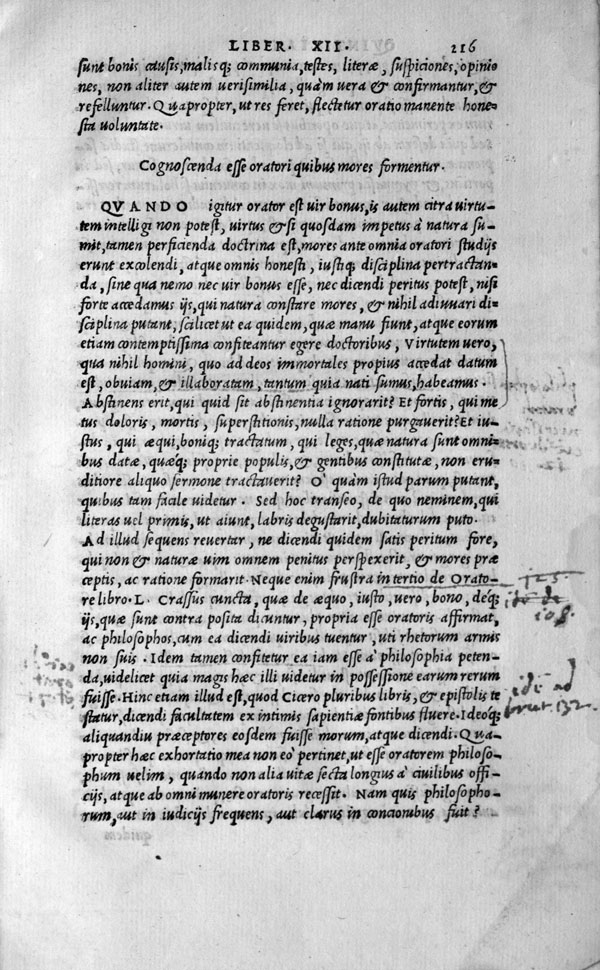 LIBER. XII. 216
sunt bonis causis, malisq; communia, testes, literæ, suspiciones, opinio
nes, non aliter autem uerisimilia, quàm uera & confirmantur, &
refelluntur. Quapropter, ut res feret, flectetur oratio manente hone-
sta uoluntate.
Cognoscenda esse oratori quibus mores formentur.
QVANDO igitur orator est uir bonus, is autem citra uirtu-
tem intelligi non potest, uirtus & si quosdam impetus à natura su-
mit, tamen perficienda doctrina est, mores ante omnia oratori studijs
erunt excolendi, atque omnis honesti, iustiq; disciplina pertractan-
da, sine qua nemo nec uir bonus esse, nec dicendi peritus potest, nisi
forte accedamus ijs, qui natura constare mores, & nihil adiuuari di-
sciplina putant, scilicet ut ea quidem, quæ manu fiunt, atque eorum
etiam contemptissima confiteantur egere doctoribus, Virtutem uero,
qua nihil homini, quo ad deos immortales propius accedat datum
est, obuiam, & illaboratam, tantum quia nati sumus, habeamus.
Abstinens erit, qui quid sit abstinentia ignorarit? Et fortis, qui me
tus doloris, mortis, superstitionis, nulla ratione purgauerit? Et iu-
stus, qui æqui, boniq; tractatum, qui leges, quæ natura sunt omni-
bus datæ, quæq; proprie populis, & gentibus constitutæ, non eru-
ditiore aliquo sermone tractauerit? O' quàm istud parum putant,
quibus tam facile uidetur. Sed hoc transeo, de quo neminem, qui
literas uel primis, ut aiunt, labris degustarit, dubitaturum puto.
Ad illud sequens reuertar, ne dicendi quidem satis peritum fore,
qui non & naturæ uim omnem penitus perspexerit, & mores præ
ceptis, ac ratione formarit. Neque enim frustra in tertio de Orato-
re libro. L. Crassus cuncta, quæ de æquo, iusto, uero, bono, deq;
ijs, quæ sunt contra posita dicuntur, propria esse oratoris affirmat,
ac philosophos, cum ea dicendi uiribus tuentur, uti rhetorum armis
non suis. Idem tamen confitetur ea iam esse à philosophia peten-
da, uidelicet quia magis hæc illi uidetur in possessione earum rerum
fuisse. Hinc etiam illud est, quod Cicero pluribus libris, & epistolis te
statur, dicendi facultatem ex intimis sapientiæ fontibus fluere. Ideoq;
aliquandiu præceptores eosdem fuisse morum, atque dicendi. Qua-
propter hæc exhortatio mea non eò pertinet, ut esse oratorem philoso-
phum uelim, quando non alia uitæ secta longius à ciuilibus offi-
cijs, atque ab omni munere oratoris recessit. Nam quis philosopho-
rum, aut in iudicijs frequens, aut clarus in concionibus fuit?
quidem